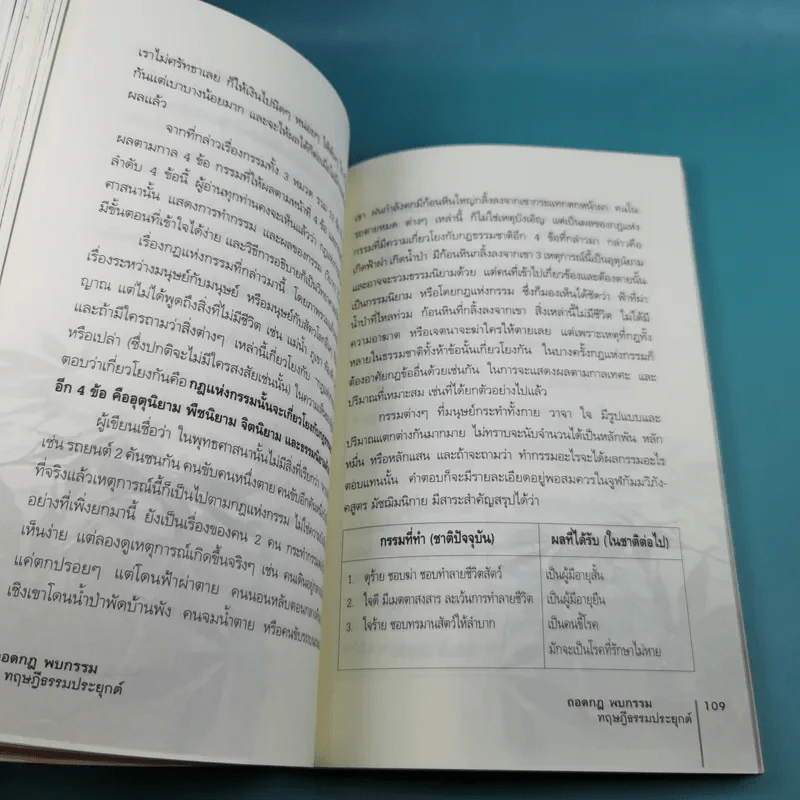 เราไม่ศรัทธาเลย ก็ให้เงินไปนิดๆ หน่อยๆ
กันแต่เบาบางน้อยมาก และจะให้ผลได้
ผลแล้ว
จากที่กล่าวเรื่องกรรมทั้ง 3 หมวด รวม
ผลตามกาล 4 ข้อ กรรมที่ให้ผลตามหน้าที่ 4 ข้อ
ลำดับ 4 ข้อนี้ ผู้อ่านทุกท่านคงจะเห็นแล้วว่า
ศาสนานั้น แสดงการทำกรรม และผลของกรรม
มีขั้นตอนที่เข้าใจได้ง่าย และวิธีการอธิบายก็เป็น
เรื่องกฎแห่งกรรมที่กล่าวมานี้ โดยภาพรวม
เรื่องระหว่างมนุษย์กับมนุษย์ หรือมนุษย์กับสัตว์
ญาณ แต่ไม่ได้พูดถึงสิ่งที่ไม่มีชีวิต เช่น แม่น้ำ ภูเขา
และถ้ามีใครถามว่าสิ่งต่างๆ เหล่านี้เกี่ยวโยงกับ
หรือเปล่า (ซึ่งปกติจะไม่มีใครสงสัยเช่นนั้น) ในความ
ตอบว่าเกี่ยวโยงกันคือ กฎแห่งกรรมนั้นจะเกี่ยวโยงกับกฎ
อีก 4 ข้อ คืออุตุนิยาม พืชนิยาม จิตนิยาม และธรรมนิยาม
ผู้เขียนเชื่อว่า ในพุทธศาสนานั้นไม่มีสิ่งที่เรียกว่า
เช่น รถยนต์ 2 คันชนกัน คนขับคนหนึ่งตาย คนขับอีกคน
ที่จริงแล้วเหตุการณ์นี้ก็เป็นไปตามกฎแห่งกรรม ไม่ใช่ความ
อย่างที่เพิ่งยกมานี้ ยังเป็นเรื่องของคน 2 คน กระทำกรรม
เห็นง่าย แต่ลองดูเหตุการณ์เกิดขึ้นจริงๆ เช่น คนเดินอยู่
แค่ตกปรอยๆ แต่โดนฟ้าผ่าตาย คนนอนหลับตอนกลาง
เชิงเขาโดนน้ำป่าพัดบ้านพัง คนจมน้ำตาย หรือคนขับรถ
ถอดกฎ พบกรรม
ทฤษฎีธรรมประยุกต์
เขา ฝนกำลังตกมีก้อนหินใหญ่กลิ้งลงจากเขากระแทกตกหนักมา คนใน
รถตายหมด ต่างๆ เหล่านี้ ก็ไม่ใช่เหตุบังเอิญ แต่เป็นผลของกฎแห่ง
กรรมที่มีความเกี่ยวโยงกับกฎธรรมชาติอีก 4 ข้อที่กล่าวมา กล่าวคือ
เกิดฟ้าผ่า เกิดน้ำป่า มีก้อนหินกลิ้งลงจากเขา 3 เหตุการณ์นี้เป็นอุตุนิยาม
และอาจจะรวมธรรมนิยามด้วย แต่คนที่เข้าไปเกี่ยวข้องและต้องตายนั้น
เป็นกรรมนิยาม หรือโดยกฎแห่งกรรม ซึ่งก็มองเห็นได้ชัดว่า ฟ้าที่ผ่า
น้ำป่าที่ไหลท่วม ก้อนหินที่กลิ้งลงจากเขา สิ่งเหล่านี้ไม่มีชีวิต ไม่ได้มี
ความอาฆาต หรือเจตนาจะฆ่าใครให้ตายเลย แต่เพราะเหตุที่กฎทั้ง
หลายในธรรมชาติทั้งห้าข้อนั้นเกี่ยวโยงกัน ในบางครั้งกฎแห่งกรรมก็
ต้องอาศัยกฎข้ออื่นด้วยเช่นกัน ในการจะแสดงผลตามกาลเทศะ และ
ปริมาณที่เหมาะสม เช่นที่ได้ยกตัวอย่างไปแล้ว
กรรมต่างๆ ที่มนุษย์กระทำทั้งกาย วาจา ใจ มีรูปแบบและ
ปริมาณแตกต่างกันมากมาย ไม่ทราบจะนับจำนวนได้เป็นหลักพัน หลัก
หมื่น หรือหลักแสน และถ้าจะถามว่า ทำกรรมอะไรจะได้ผลกรรมอะไร
ตอบแทนนั้น คำตอบก็จะมีรายละเอียดอยู่พอสมควรในจูฬกัมมวิภัง-
คสูตร มัชฌิมนิกาย มีสาระสำคัญสรุปได้ว่า
กรรมที่ทำ (ชาติปัจจุบัน) ผลที่ได้รับ (ในชาติต่อไป)
1. ดุร้าย ชอบฆ่า ชอบทำลายชีวิตสัตว์ เป็นผู้มีอายุสั้น
2. ใจดี มีเมตตาสงสาร ละเว้นการทำลายชีวิต เป็นผู้มีอายุยืน
3. ใจร้าย ชอบทรมานสัตว์ให้ลำบาก เป็นคนขี้โรค
มักจะเป็นโรคที่รักษาไม่หาย
ถอดกฎ พบกรรม
ทฤษฎีธรรมประยุกต์
109